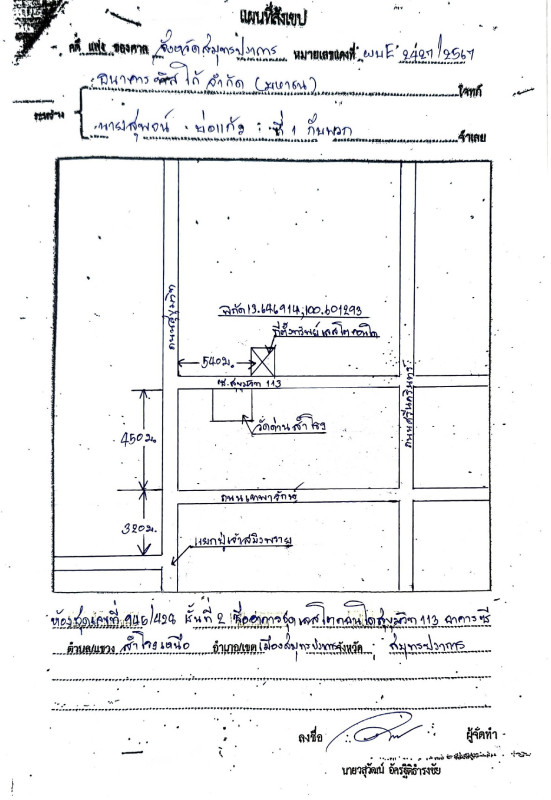 แผนที่สังเขป
คดี แพ่ง ของศาล จังหวัดสมุทรปราการ หมายเลขแดงที่ ผบE 2427/2567
ธนาคาร ทิสโก้ จำกัด (มหาชน) โจทก์
ระหว่าง
นายสุพจน์ บ่อแก้ว ที่ 1 กับพวก จำเลย
ถนนสุขุมวิท
พิกัด 13.646914,100.601293
ที่ตั้งทรัพย์ เลสโตคอนโด
540ม.
ซ.สุขุมวิท 113
ถนนศรีนครินทร์
วัดด่านสำโรง
450ม.
ถนนเทพารักษ์
320ม.
แยกปู่เจ้าสมิงพราย
ห้องชุดเลขที่ 946/424 ชั้นที่ 2 ชื่ออาคารชุด เลสโตคอนโดสุขุมวิท 113 อาคารซี
ตำบล/แขวง สำโรงเหนือ อำเภอ/เขต เมืองสมุทรปราการ จังหวัด สมุทรปราการ
ลงชื่อ ผู้จัดทำ
นายวสุวัฒน์ อัครฐิติธำรงชัย